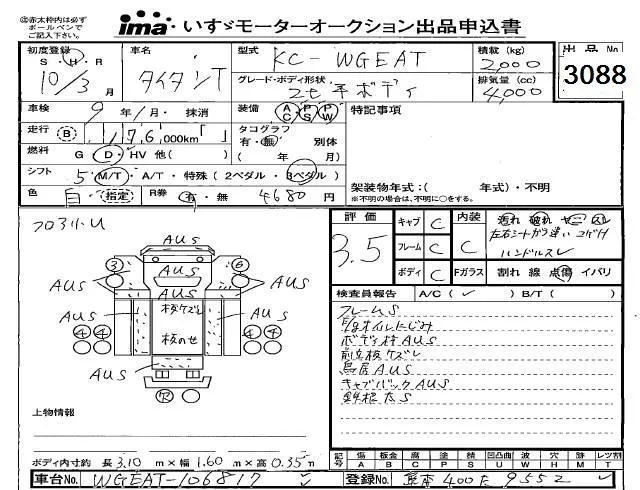 ㊟赤太枠内は必ず
ボールペンで
ご記入下さい。
ima いすゞモーターオークション出品申込書
初度登録 車名 型式 KC-WGEAT 積載(kg) 2,000 出品No
S・H・R
10/3月 タイタンT グレード・ボディ形状 2t平ボディ 排気量(cc) 4,000 3088
車検 9年/月・抹消 装備 AC PS PW 特記事項
走行 B 176,000km「 」 タコグラフ
有・無 別体
燃料 G D・HV 他( ) ( 年 月)
シフト 5 M/T・A/T・特殊(2ペダル・3ペダル) 架装物年式:( 年式)・不明
※不明の場合は、不明に○をする。
色 白 指定 R券 有・無 4680円
フロ311U
評価 キャブ C 内装 汚れ 破れ ヤニ スレ
3.5 フレーム C C 左右シートガラ違い コゲ穴
ハンドルスレ
ボディ C Fガラス 割れ 線 点傷 イバリ
AUS
3 6
AUS AUS
AUS 板ケズレ AUS
4 4 板のせ 4 4
AUS
R
検査員報告 A/C(✓) B/T( )
フレームS
E/gオイルにじみ
ボディ枠AUS
前立板ケズレ
鳥居AUS
キャブバックAUS
鉄板穴S
上物情報
記号 傷 板金 腐 塗 錆 凹凸曲 波 穴 欠 レツ割
A B C P S U W H M T
ボディ内寸約 長 3.10 m×幅 1.60 m×高 0.35 m
車台No. WGEAT-106817 登録No. 熊本400た9552